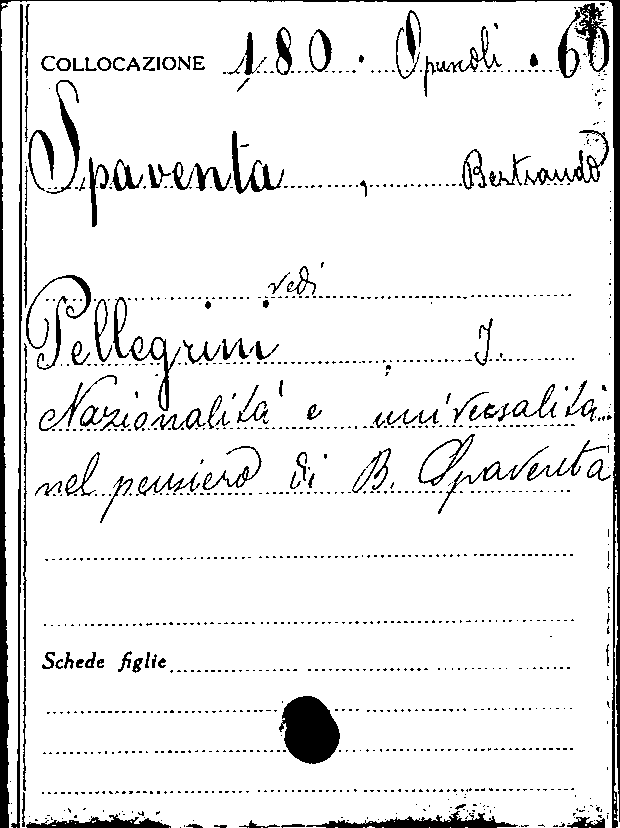 COLLOCAZIONE 180. Opuscoli. 60
Spaventa, Bertrando
vedi
Pellegrini, J.
Nazionalità e universalità
nel pensiero di B. Spaventa
Schede figlie